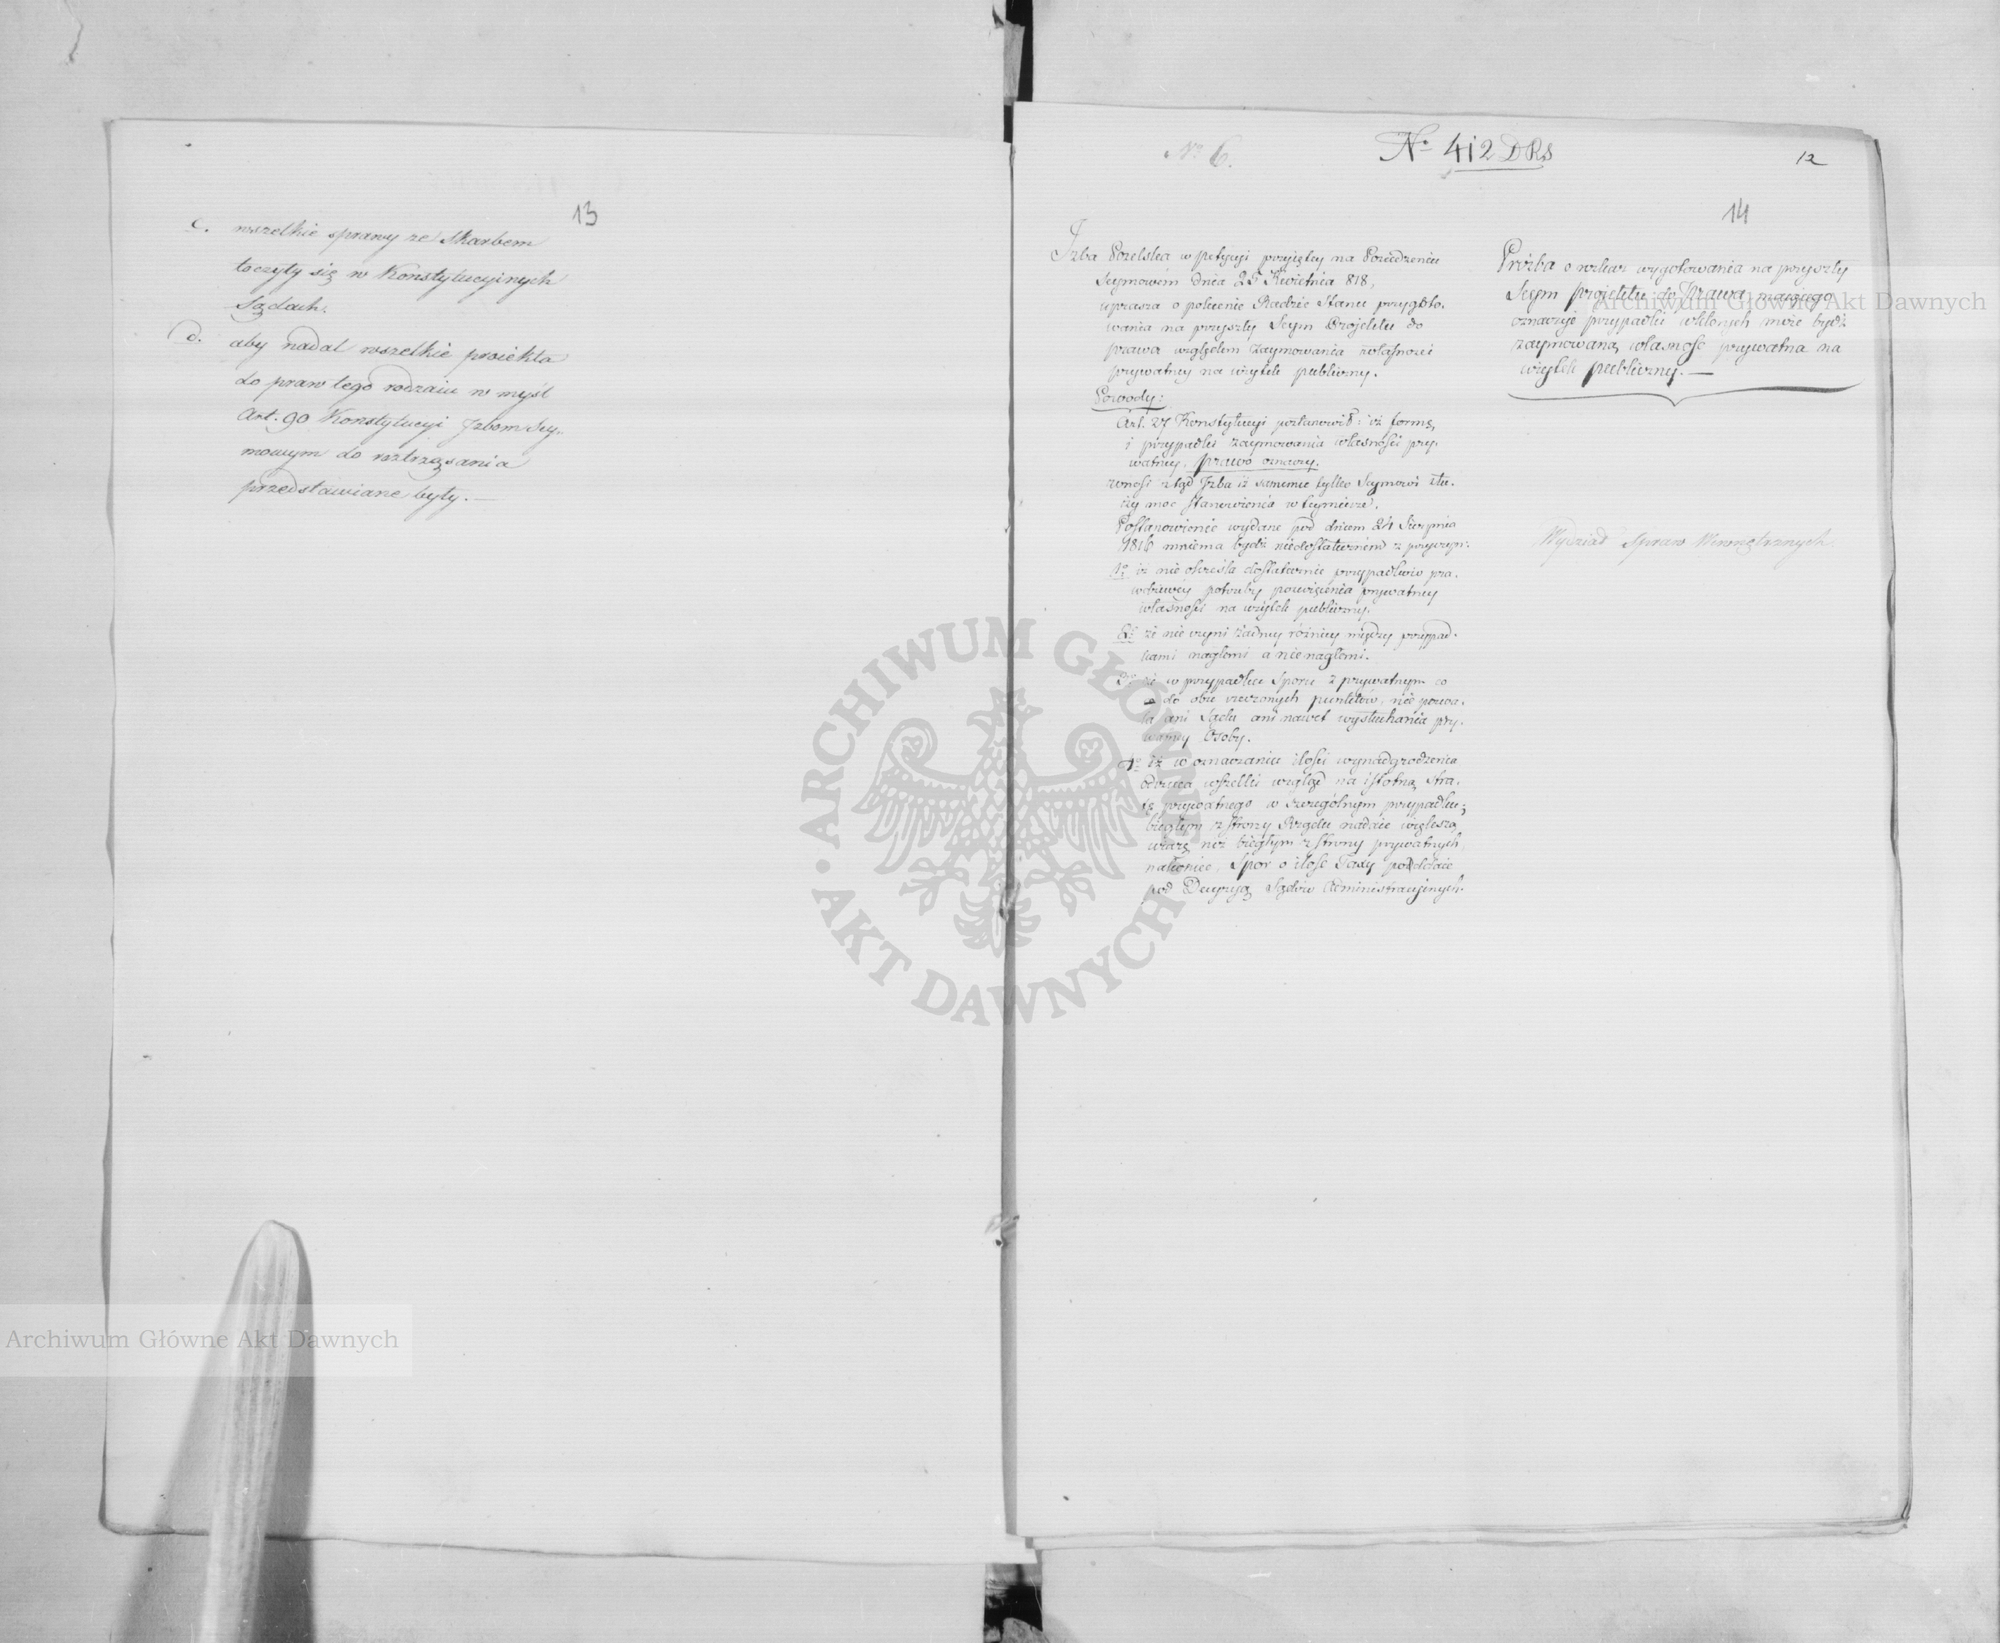 13
c. wszelkie sprawy ze Skarbem
toczyły się w Konstytucyinych
Sądach.
d. aby nadal wszelkie proiekta
do praw tego rodzaiu w myśl
Art. 90 Konstytucyi Izbom Sey-
mowym do roztrząsania
przedstawiane były. —
Nº 6.
Nº 412 DRS
12
14
Izba Poselska w petycyi przyiętey na Posiedzeniu
Seymowém dnia 25 Kwietnia 818,
uprasza o polecenie Radzie Stanu przygoto-
wania na przyszły Seym Projektu do
prawa względem zaymowania własności
prywatney na użytek publiczny.
Powody:
Art. 27 Konstytucyi postanowił: iż formę
i przypadki zaymowania własności pry-
watney, prawo oznaczy.
wnosi ztąd Izba iż samemu tylko Seymowi słu-
ży moc stanowienia w tey mierze.
Postanowienie wydane pod dniem 24 Sierpnia
1816 mniema bydź niedostateczném z przyczyn:
1º iż nie określa dostatecznie przypadków pra-
wdziwey potrzeby poświęcenia prywatney
własności na użytek publiczny.
2º że nie czyni żadney różnicy między przypad-
kami nagłemi a nienagłemi.
3º że w przypadku Sporu z prywatnym co
do obu rzeczonych punktów, nie pozwa-
la ani Sądu ani nawet wysłuchania pry-
watney Osoby.
4º iż w oznaczaniu ilości wynadgrodzenia
odrzuca wszelki wzgląd na istotną Stra-
tę prywatnego w szczególnym przypadku;
biegłym z strony Rządu nadaie większą
wiarę niż biegłym z strony prywatnych,
nakoniec, Spór o ilość Taxy poddaie
pod Decyzyą Sądów Administracyinych.
Proźba o rozkaz wygotowania na przyszły
Seym projektu do Prawa maiącego
oznaczyć przypadki w których może bydź
zaymowaną własność prywatna na
użytek publiczny. —
Wydział Spraw Wewnętrznych
Archiwum Główne Akt Dawnych
ARCHIWUM GŁÓWNE
AKT DAWNYCH
Archiwum Główne Akt Dawnych